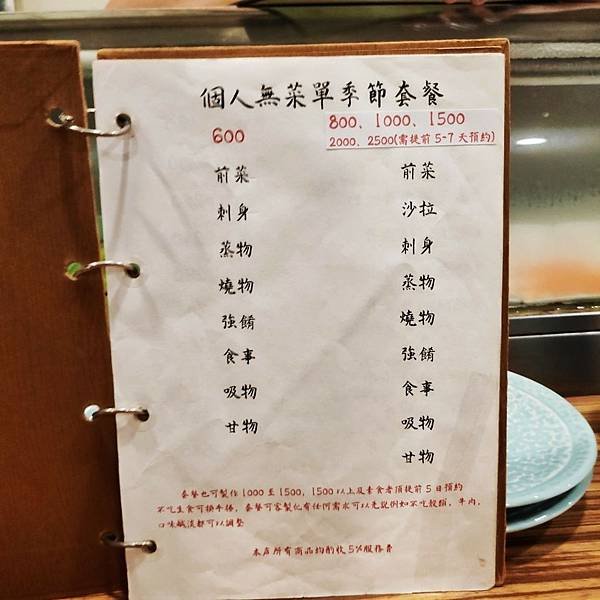 個人無菜單季節套餐
600
800、1000、1500
2000、2500(需提前5-7天預約)
前菜
刺身
蒸物
燒物
強餚
食事
吸物
甘物
前菜
沙拉
刺身
蒸物
燒物
強餚
食事
吸物
甘物
套餐也可製作1000至1500,1500以上及素食者須提前5日預約
不吃生食可換牛排,套餐可客製化有任何需求可以先說例如不吃穀類,牛肉,
口味鹹淡都可以調整
本店所有商品均酌收5%服務費